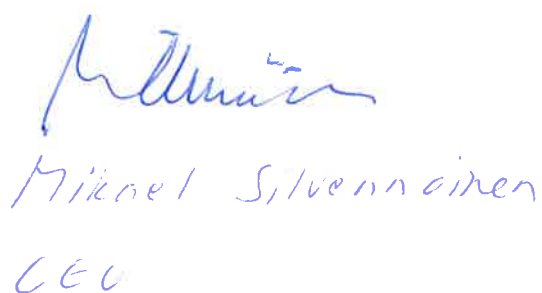 Mikael Silvennoinen
CEO